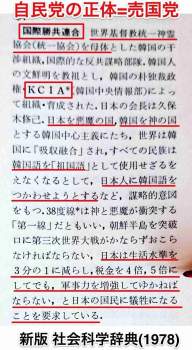 自民党の正体=売国党
国際勝共連合　世界基督教統一神霊
協会(統一協会)を母体とした韓国の干
渉組織、国際的な反共謀略部隊。韓国人
の文鮮明を教祖とし、韓国の朴独裁政
権(KCIA*／韓国中央情報部)によっ
て組織・育成された。日本の会長は久保
木修己。日本を悪魔の国、韓国を神の国
とする韓国中心主義にたち、世界は韓国
に「吸収融合」され、すべての民族は
韓国語を「祖国語」として使用せざるを
えなくなるとして、日本人に韓国語を
つかわせようとするなど、謀略的意図
をもつ。38度線*は神と悪魔が衝突する
「第一線」だともいい、朝鮮半島を突破
口に第三次世界大戦がかならずおこら
なければならない、日本は生活水準を
3分の1に減らし、税金を4倍、5倍に
してでも、軍事力を増強してゆかねば
ならない、と日本の国民に犠牲になる
ことを要求している。
新版 社会科学辞典(1978)